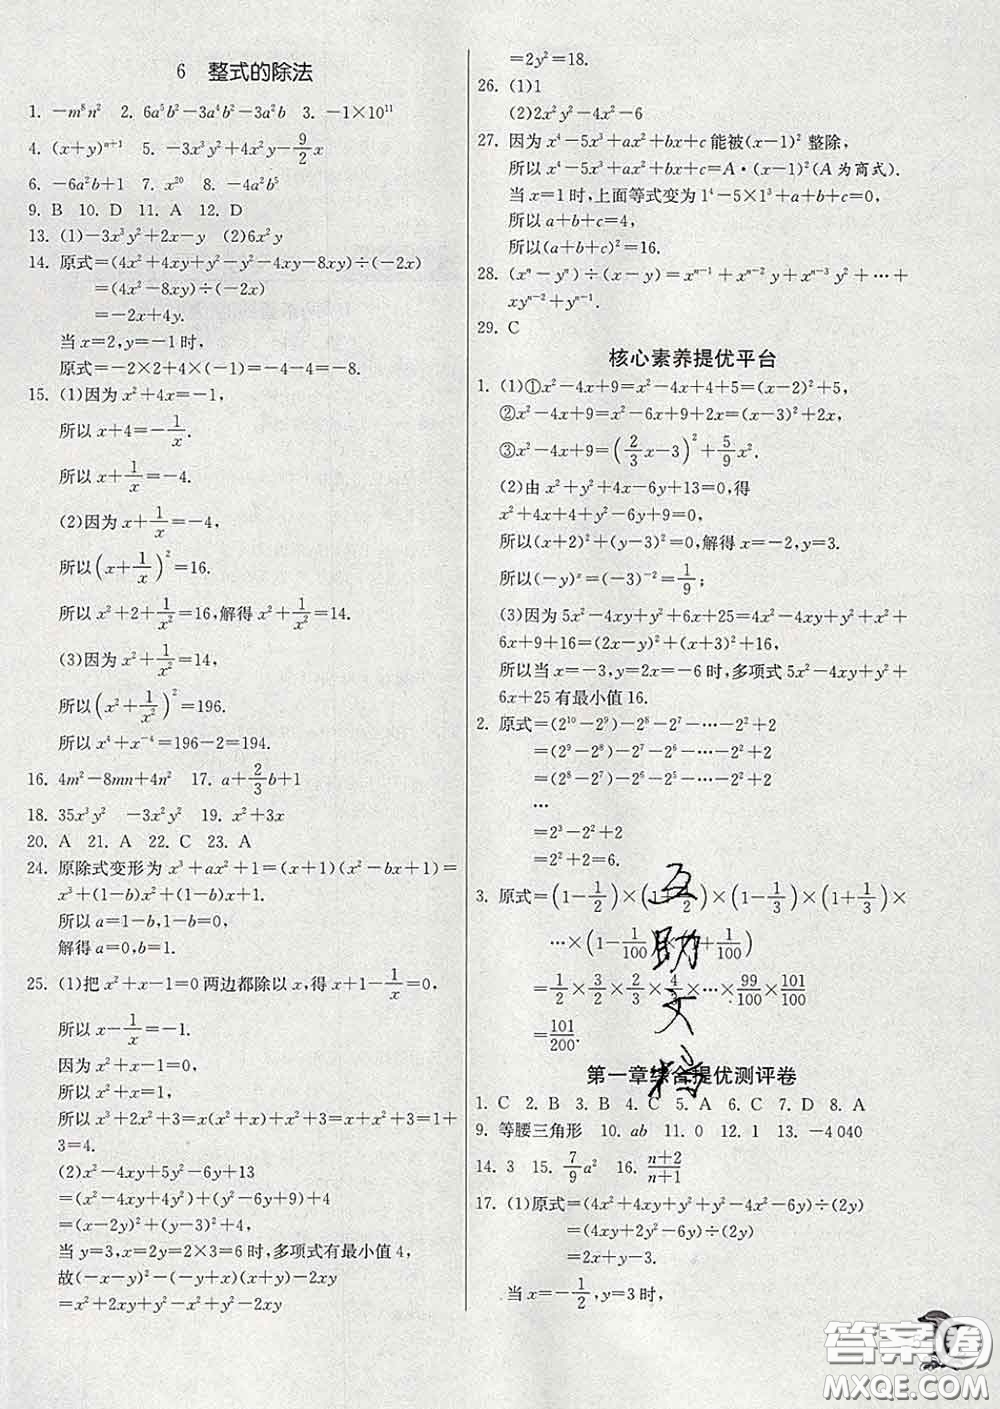 6 整式的除法
1. －m⁸n² 2. 6a⁵b²－3a⁴b²－3a²b 3. －1×10¹¹
4. (x＋y)ⁿ⁺¹ 5. －3x³y²＋4xy²－9/2 x
6. －6a²b＋1 7. x²⁰ 8. －4a²b⁵
9. B 10. D 11. A 12. D
13. (1)－3x³y²＋2x－y (2)6x²y
14. 原式＝(4x²＋4xy＋y²－y²－4xy－8xy)÷(－2x)
＝(4x²－8xy)÷(－2x)
＝－2x＋4y.
当 x＝2,y＝－1 时,
原式＝－2×2＋4×(－1)＝－4－4＝－8.
15. (1)因为 x²＋4x＝－1,
所以 x＋4＝－1/x.
所以 x＋1/x＝－4.
(2)因为 x＋1/x＝－4,
所以(x＋1/x)²＝16.
所以 x²＋2＋1/x²＝16,解得 x²＋1/x²＝14.
(3)因为 x²＋1/x²＝14,
所以(x²＋1/x²)²＝196.
所以 x⁴＋x⁻⁴＝196－2＝194.
16. 4m²－8mn＋4n² 17. a＋2/3 b＋1
18. 35x³y² －3x²y² 19. x²＋3x
20. A 21. A 22. C 23. A
24. 原除式变形为 x³＋ax²＋1＝(x＋1)(x²－bx＋1)＝
x³＋(1－b)x²＋(1－b)x＋1.
所以 a＝1－b,1－b＝0,
解得 a＝0,b＝1.
25. (1)把 x²＋x－1＝0 两边都除以 x,得 x＋1－1/x＝0,
所以 x－1/x＝－1.
因为 x²＋x－1＝0,
所以 x²＋x＝1,
所以 x³＋2x²＋3＝x(x²＋x)＋x²＋3＝x＋x²＋3＝1＋
3＝4.
(2)x²－4xy＋5y²－6y＋13
＝(x²－4xy＋4y²)＋(y²－6y＋9)＋4
＝(x－2y)²＋(y－3)²＋4,
当 y＝3,x＝2y＝2×3＝6 时,多项式有最小值 4,
故(－x－y)²－(－y＋x)(－x－y)－2xy
＝x²＋2xy＋y²－x²＋y²－2xy
＝2y²＝18.
26. (1)1
(2)2x²y²－4x²－6
27. 因为 x⁴－5x³＋ax²＋bx＋c 能被(x－1)² 整除,
所以 x⁴－5x³＋ax²＋bx＋c＝A·(x－1)²(A 为商式)
当 x＝1 时,上面等式变为 1⁴－5×1³＋a＋b＋c＝0,
所以 a＋b＋c＝4,
所以(a＋b＋c)²＝16.
28. (xⁿ－yⁿ)÷(x－y)＝xⁿ⁻¹＋xⁿ⁻²y＋xⁿ⁻³y²＋…＋
xyⁿ⁻²＋yⁿ⁻¹.
29. C
核心素养提优平台
1. (1)①x²－4x＋9＝x²－4x＋4＋5＝(x－2)²＋5,
②x²－4x＋9＝x²－6x＋9＋2x＝(x－3)²＋2x,
③x²－4x＋9＝(2/3 x－3)²＋5/9 x².
(2)由 x²＋y²＋4x－6y＋13＝0,得
x²＋4x＋4＋y²－6y＋9＝0,
所以(x＋2)²＋(y－3)²＝0,解得 x＝－2,y＝3.
所以(－y)ˣ＝(－3)⁻²＝1/9;
(3)因为 5x²－4xy＋y²＋6x＋25＝4x²－4xy＋y²＋x²＋
6x＋9＋16＝(2x－y)²＋(x＋3)²＋16,
所以当 x＝－3,y＝2x＝－6 时,多项式 5x²－4xy＋y²＋
6x＋25 有最小值 16.
2. 原式＝(2¹⁰－2⁹)－2⁸－2⁷－…－2²＋2
＝(2⁹－2⁸)－2⁷－…－2²＋2
＝(2⁸－2⁷)－2⁶－2⁵－…－2²＋2
…
＝2³－2²＋2
＝2²＋2＝6.
3. 原式＝(1－1/2)×(1＋1/2)×(1－1/3)×(1＋1/3)×
…×(1－1/100)×(1＋1/100)
＝1/2×3/2×2/3×4/3×…×99/100×101/100
＝101/200.
互助文档
第一章综合提优测评卷
1. C 2. B 3. B 4. C 5. A 6. C 7. D 8. A
9. 等腰三角形 10. ab 11. 0 12. 1 13. －4 040
14. 3 15. 7/9 a² 16. n＋2/n＋1
17. (1)原式＝(4x²＋4xy＋y²＋y²－4x²－6y)÷(2y)
＝(4xy＋2y²－6y)÷(2y)
＝2x＋y－3.
当 x＝－1/2,y＝3 时,
答案圈
MXQE.COM